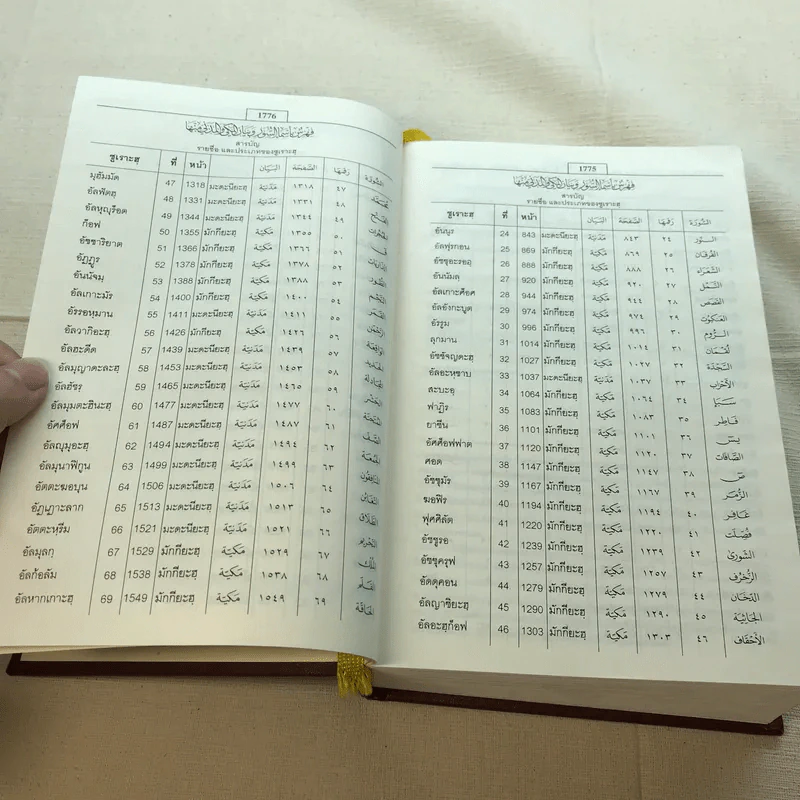 1775
فهرس بأسماء السور وبيان المكي والمدني منها
สารบัญ
รายชื่อ และประเภทของซูเราะฮฺ
ซูเราะฮฺ ที่ หน้า البَيَان الصَّفحَة رَقمهَا السُّورَة
อันนูร 24 843 มะดะนียะฮฺ مَدَنيّة ٨٤٣ ٢٤ النُّور
อัลฟุรกอน 25 869 มักกียะฮฺ مَكيّة ٨٦٩ ٢٥ الفُرقَان
อัชชุอะรออฺ 26 888 มักกียะฮฺ مَكيّة ٨٨٨ ٢٦ الشُّعَرَاء
อันนัมลฺ 27 920 มักกียะฮฺ مَكيّة ٩٢٠ ٢٧ النَّمْل
อัลเกาะศ็อศ 28 944 มักกียะฮฺ مَكيّة ٩٤٤ ٢٨ القَصَص
อัลอังกะบูต 29 974 มักกียะฮฺ مَكيّة ٩٧٤ ٢٩ العَنكبُوت
อัรรูม 30 996 มักกียะฮฺ مَكيّة ٩٩٦ ٣٠ الرُّوم
ลุกมาน 31 1014 มักกียะฮฺ مَكيّة ١٠١٤ ٣١ لُقمَان
อัซซัจญดะฮฺ 32 1027 มักกียะฮฺ مَكيّة ١٠٢٧ ٣٢ السَّجدَة
อัลอะหฺซาบ 33 1037 มะดะนียะฮฺ مَدَنيّة ١٠٣٧ ٣٣ الأحزَاب
สะบะอฺ 34 1064 มักกียะฮฺ مَكيّة ١٠٦٤ ٣٤ سَبَإ
ฟาฏิร 35 1083 มักกียะฮฺ مَكيّة ١٠٨٣ ٣٥ فَاطِر
ยาซีน 36 1101 มักกียะฮฺ مَكيّة ١١٠١ ٣٦ يسٓ
อัศศ็อฟฟาต 37 1120 มักกียะฮฺ مَكيّة ١١٢٠ ٣٧ الصَّافات
ศอด 38 1147 มักกียะฮฺ مَكيّة ١١٤٧ ٣٨ صٓ
อัซซุมัร 39 1167 มักกียะฮฺ مَكيّة ١١٦٧ ٣٩ الزُّمَر
ฆอฟิร 40 1194 มักกียะฮฺ مَكيّة ١١٩٤ ٤٠ غَافِر
ฟุศศิลัต 41 1220 มักกียะฮฺ مَكيّة ١٢٢٠ ٤١ فُصّلَت
อัชชูรอ 42 1239 มักกียะฮฺ مَكيّة ١٢٣٩ ٤٢ الشّورى
อัซซุครุฟ 43 1257 มักกียะฮฺ مَكيّة ١٢٥٧ ٤٣ الزّخرُف
อัดดุคอน 44 1279 มักกียะฮฺ مَكيّة ١٢٧٩ ٤٤ الدّخَان
อัลญาซิยะฮฺ 45 1290 มักกียะฮฺ مَكيّة ١٢٩٠ ٤٥ الجَاثيَة
อัลอะฮฺก็อฟ 46 1303 มักกียะฮฺ مَكيّة ١٣٠٣ ٤٦ الأحقَاف
1776
فهرس بأسماء السور وبيان المكي والمدني منها
สารบัญ
รายชื่อ และประเภทของซูเราะฮฺ
ซูเราะฮฺ ที่ หน้า البَيَان الصَّفحَة رَقمهَا السُّورَة
มุฮัมมัด 47 1318 มะดะนียะฮฺ مَدَنيّة ١٣١٨ ٤٧
อัลฟัตฮฺ 48 1331 มะดะนียะฮฺ مَدَنيّة ١٣٣١ ٤٨ الفَتْح
อัลหุญุร็อต 49 1344 มะดะนียะฮฺ مَدَنيّة ١٣٤٤ ٤٩ الحُجُرات
ก็อฟ 50 1355 มักกียะฮฺ مَكيّة ١٣٥٥ ٥٠ قٓ
อัซซาริยาต 51 1366 มักกียะฮฺ مَكيّة ١٣٦٦ ٥١ الذّاريَات
อัฏฏูร 52 1378 มักกียะฮฺ مَكيّة ١٣٧٨ ٥٢ الطُّور
อันนัจมฺ 53 1388 มักกียะฮฺ مَكيّة ١٣٨٨ ٥٣ النّجْم
อัลเกาะมัร 54 1400 มักกียะฮฺ مَكيّة ١٤٠٠ ٥٤ القَمَر
อัรรอหฺมาน 55 1411 มะดะนียะฮฺ مَدَنيّة ١٤١١ ٥٥ الرَّحمٰن
อัลวากิอะฮฺ 56 1426 มักกียะฮฺ مَكيّة ١٤٢٦ ٥٦ الواقِعَة
อัลหะดีด 57 1439 มะดะนียะฮฺ مَدَنيّة ١٤٣٩ ٥٧ الحَديد
อัลมุญาดะละฮฺ 58 1453 มะดะนียะฮฺ مَدَنيّة ١٤٥٣ ٥٨ المجَادلة
อัลฮัชรฺ 59 1465 มะดะนียะฮฺ مَدَنيّة ١٤٦٥ ٥٩ الحَشر
อัลมุมตะฮินะฮฺ 60 1477 มะดะนียะฮฺ مَدَنيّة ١٤٧٧ ٦٠ المُمتَحنَة
อัศศ็อฟ 61 1487 มะดะนียะฮฺ مَدَنيّة ١٤٨٧ ٦١ الصَّف
อัลญุมุอะฮฺ 62 1494 มะดะนียะฮฺ مَدَنيّة ١٤٩٤ ٦٢ الجُمُعَة
อัลมุนาฟิกูน 63 1499 มะดะนียะฮฺ مَدَنيّة ١٤٩٩ ٦٣ المنَافِقون
อัตตะฆอบุน 64 1506 มะดะนียะฮฺ مَدَنيّة ١٥٠٦ ٦٤ التغَابُن
อัฏเฏาะลาก 65 1513 มะดะนียะฮฺ مَدَنيّة ١٥١٣ ٦٥ الطّلَاق
อัตตะหฺรีม 66 1521 มะดะนียะฮฺ مَدَنيّة ١٥٢١ ٦٦ التّحْريم
อัลมุลกฺ 67 1529 มักกียะฮฺ مَكيّة ١٥٢٩ ٦٧ المُلك
อัลก้อลัม 68 1538 มักกียะฮฺ مَكيّة ١٥٣٨ ٦٨ القَلَم
อัลหากเกาะฮฺ 69 1549 มักกียะฮฺ مَكيّة ١٥٤٩ ٦٩ الحَاقَّة